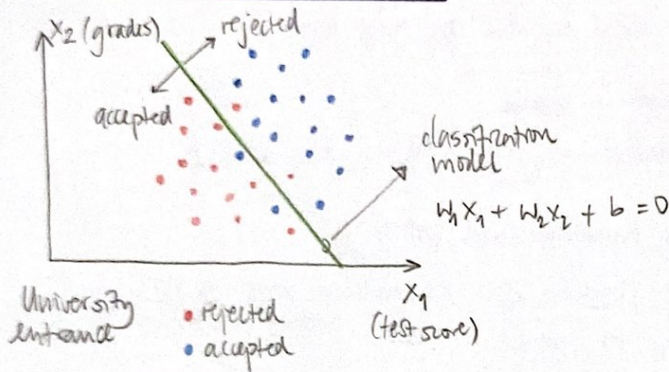 X₂ (grades)
rejected
accepted
classification
model
W₁X₁ + W₂X₂ + b = 0
X₁
(test score)
University
entrance
rejected
accepted